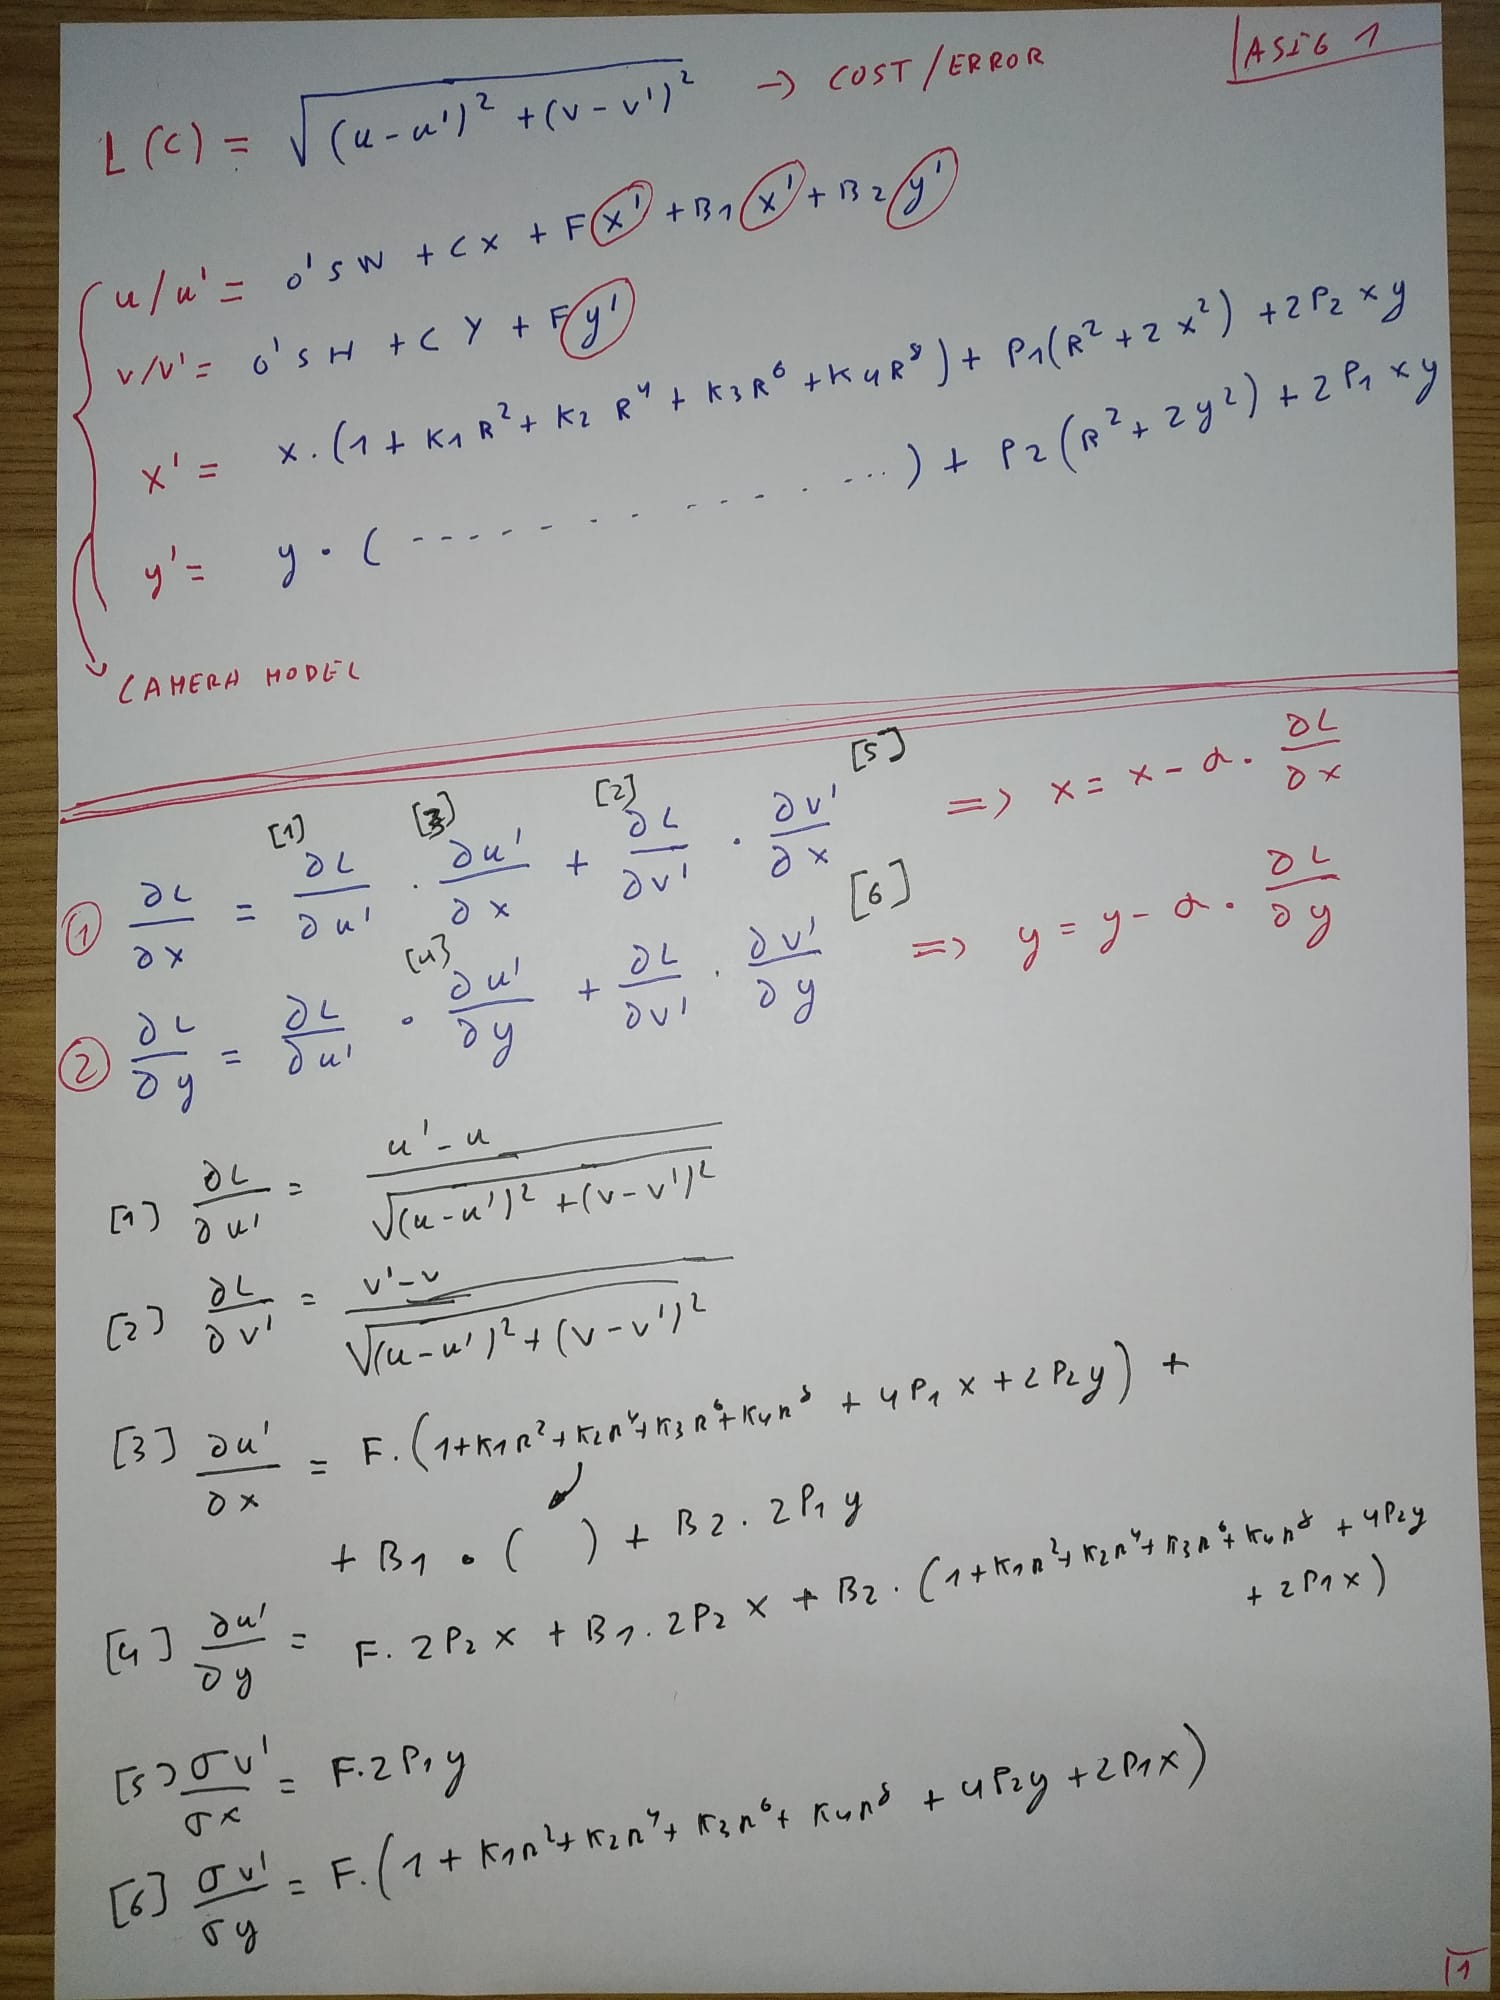 ASIG 1
L(C) = √((u-u')² + (v-v')²) → COST/ERROR
u/u' = 0'5 W + CX + F x' + B1 x' + B2 y'
v/v' = 0'5 H + CY + F y'
x' = x·(1 + K1R² + K2R⁴ + K3R⁶ + K4R⁸) + P1(R² + 2x²) + 2P2xy
y' = y·( ............ ) + P2(R² + 2y²) + 2P1xy
CAMERA MODEL
[1] [3] [2] [5]
① ∂L/∂x = ∂L/∂u' · ∂u'/∂x + ∂L/∂v' · ∂v'/∂x => x = x - α · ∂L/∂x
[4] [6]
② ∂L/∂y = ∂L/∂u' · ∂u'/∂y + ∂L/∂v' · ∂v'/∂y => y = y - α · ∂L/∂y
[1] ∂L/∂u' = (u'-u)/√((u-u')² + (v-v')²)
[2] ∂L/∂v' = (v'-v)/√((u-u')² + (v-v')²)
[3] ∂u'/∂x = F·(1 + K1R² + K2R⁴ + K3R⁶ + K4R⁸ + 4P1x + 2P2y) +
+ B1 · ( ) + B2 · 2P1y
[4] ∂u'/∂y = F·2P2x + B1·2P2x + B2·(1 + K1R² + K2R⁴ + K3R⁶ + K4R⁸ + 4P2y
+ 2P1x)
[5] σv'/σx = F·2P1y
[6] σv'/σy = F·(1 + K1R² + K2R⁴ + K3R⁶ + K4R⁸ + 4P2y + 2P1x)
1